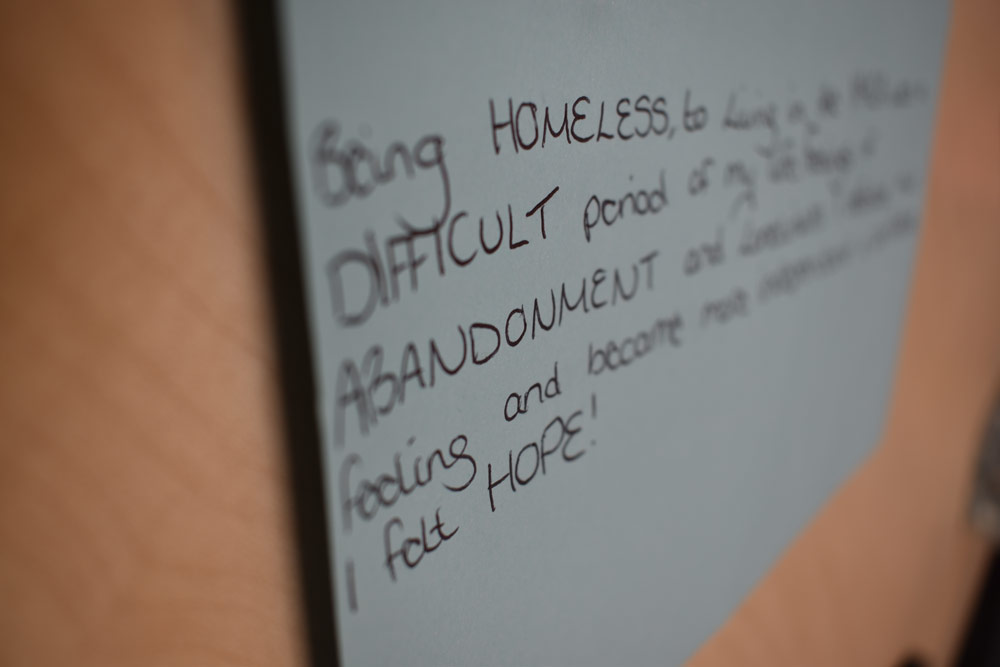 Being HOMELESS, to Living in the
DIFFICULT period of my life
ABANDONMENT and
feeling and become more independent
I felt HOPE!